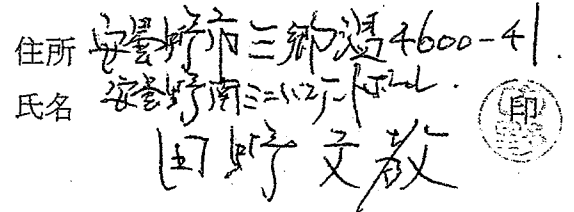 住所 安曇野市三郷温4600-41.
氏名 安曇野南ミニバスケットボール.
田野文教
印